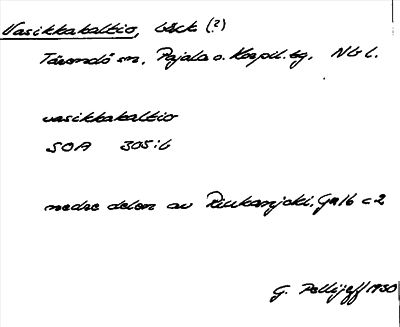 Vasikkakaltio, bäck (?)
Tärendö sn, Pajala o. Korpil. tg, Nb l.
vasikkakaltio
SOA 305:6
nedre delen av Riukanjoki, Ga16 c2
G. Pellijeff 1950